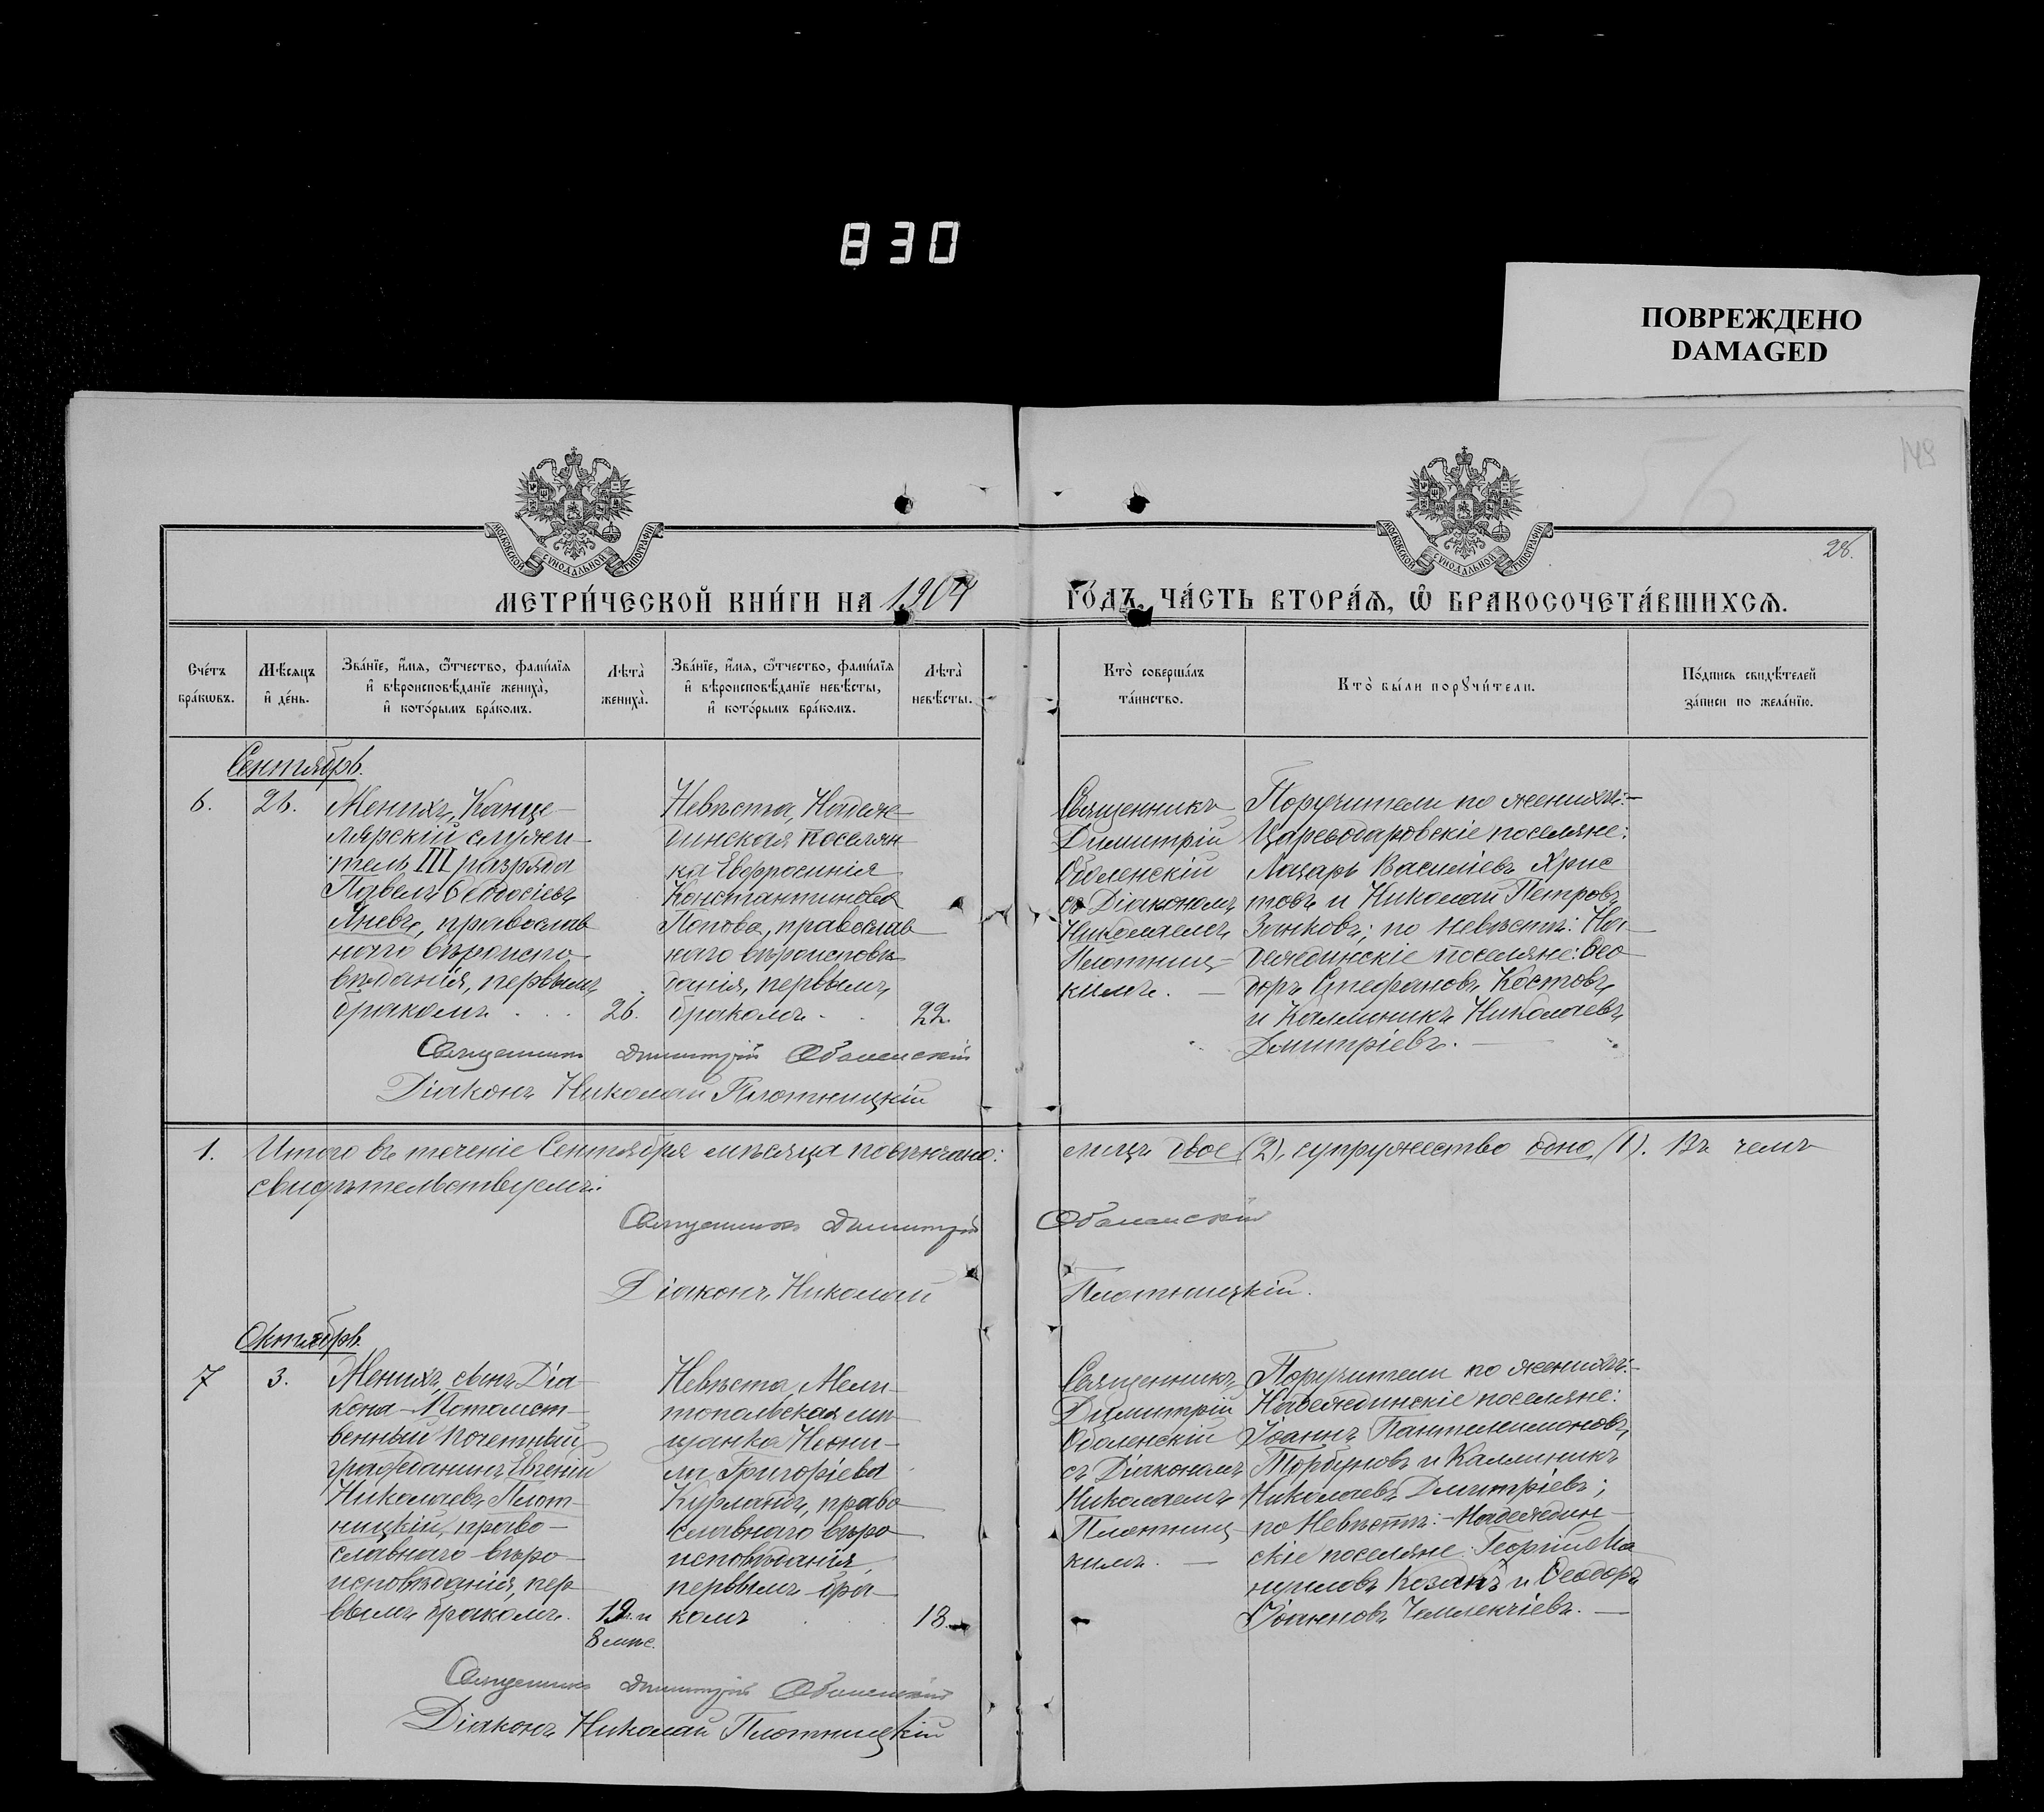 830
ПОВРЕЖДЕНО
DAMAGED
56
149
МОСКОВСКОЙ СѴНОДАЛЬНОЙ ТИПОГРАФІИ
МОСКОВСКОЙ СѴНОДАЛЬНОЙ ТИПОГРАФІИ
28.
МЕТРИ́ЧЕСКОЙ КНИ́ГИ НА 1904
ГО́ДЪ, ЧА́СТЬ ВТОРА́Ѧ, Ѡ҆ БРАКОСОЧЕТА́ВШИХСѦ.
Сче́тъ
бра́кѡвъ.
Мѣ́сѧцъ
и҆ де́нь.
Зва́нїе, и҆́мѧ, ѻ҆́тчество, фами́лїѧ
и҆ вѣроисповѣ́данїе жениха̀,
и҆ кото́рымъ бра́комъ.
Лѣта̀
жениха̀.
Зва́нїе, и҆́мѧ, ѻ҆́тчество, фами́лїѧ
и҆ вѣроисповѣ́данїе невѣ́сты,
и҆ кото́рымъ бра́комъ.
Лѣта̀
невѣ́сты.
Кто̀ соверша́лъ
та́инство.
Кто̀ бы́ли порꙋчи́тели.
По́дпись свидѣ́телей
за́писи по жела́нїю.
Сентябрь.
6.
26.
Женихъ, Канце-
лярскій служи-
тель III разряда
Павелъ Ѳеодосіевъ
Яневъ, православ-
наго вѣроиспо-
вѣданія, первымъ
бракомъ . . .
26.
Невѣста, Надеж-
динская поселян-
ка Евфросинія
Константинова
Попова, православ-
наго вѣроисповѣ-
данія, первымъ
бракомъ. .
22.
Священникъ
Димитрій
Оболенскій
съ Діакономъ
Николаемъ
Плотниц-
кимъ. —
Поручители по женихѣ:—
Царедаровскіе поселяне:
Лазарь Василіевъ Хрис-
товъ и Николай Петровъ
Занковъ; по невѣстѣ: На-
деждинскіе поселяне: Ѳео-
доръ Стефановъ Костовъ
и Каллиникъ Николаевъ
Дмитріевъ. —
Священникъ Димитрій Оболенскій
Діаконъ Николай Плотницкій
1. Итого въ теченіе Сентября мѣсяца повѣнчано: лицъ двое (2), супружество одно (1). Въ чемъ
свидѣтельствуемъ:
Священникъ Димитрій Оболенскій
Діаконъ Николай Плотницкій.
Октябрь.
7
3.
Женихъ, сынъ Діа-
кона—Потомст-
венный почетный
гражданинъ Евгеній
Николаевъ Плот-
ницкій, право-
славнаго вѣро-
исповѣданія, пер-
вымъ бракомъ.
19 л. и
8 мѣс.
Невѣста, Мели-
топольская мѣ-
щанка Неони-
ла Григоріева
Курландъ, право-
славнаго вѣро-
исповѣданія,
первымъ бра-
комъ
18.
Священникъ
Димитрій
Оболенскій
съ Діакономъ
Николаемъ
Плотниц-
кимъ. —
Поручители по женихѣ:—
Надеждинскіе поселяне:
Іоаннъ Пантелеимоновъ
Торбуновъ и Каллиникъ
Николаевъ Дмитріевъ;
по Невѣстѣ:—Надеждин-
скіе поселяне: Георгій Ма-
нуиловъ Казанъ и Ѳеодоръ
Іоанновъ Чемлекчіевъ. —
Священникъ Димитрій Оболенскій
Діаконъ Николай Плотницкій